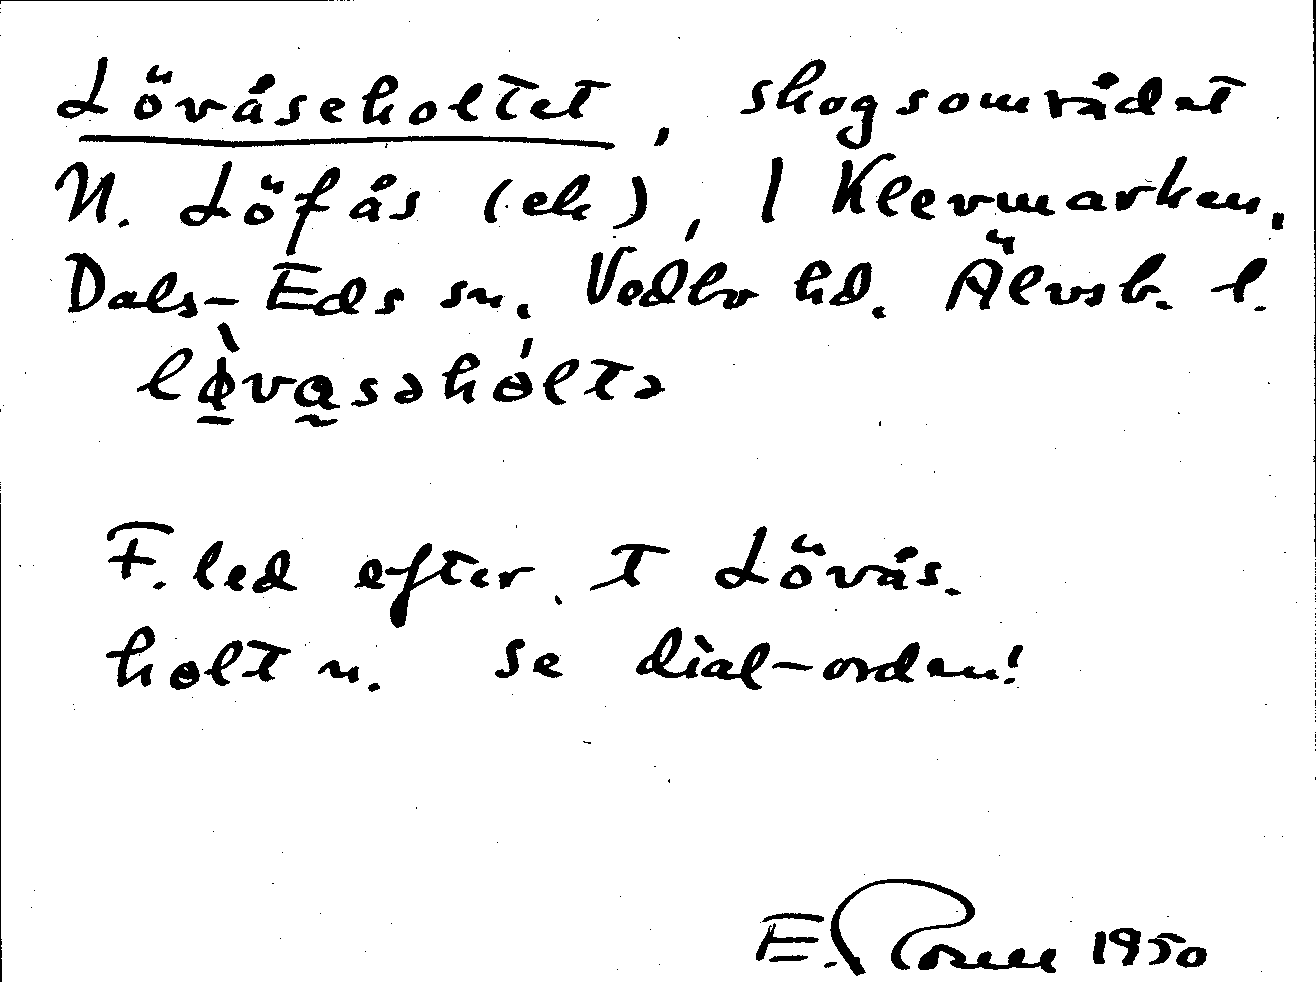 Lövåseholtet, skogsområdet
N. Löfås (ek), I Klevmarken,
Dals-Eds sn. Vedbo hd. Älvsb. l.
lø̀vasəhóltə
F. led efter. T Lövås.
holt n. se dial-orden!
E. 1950